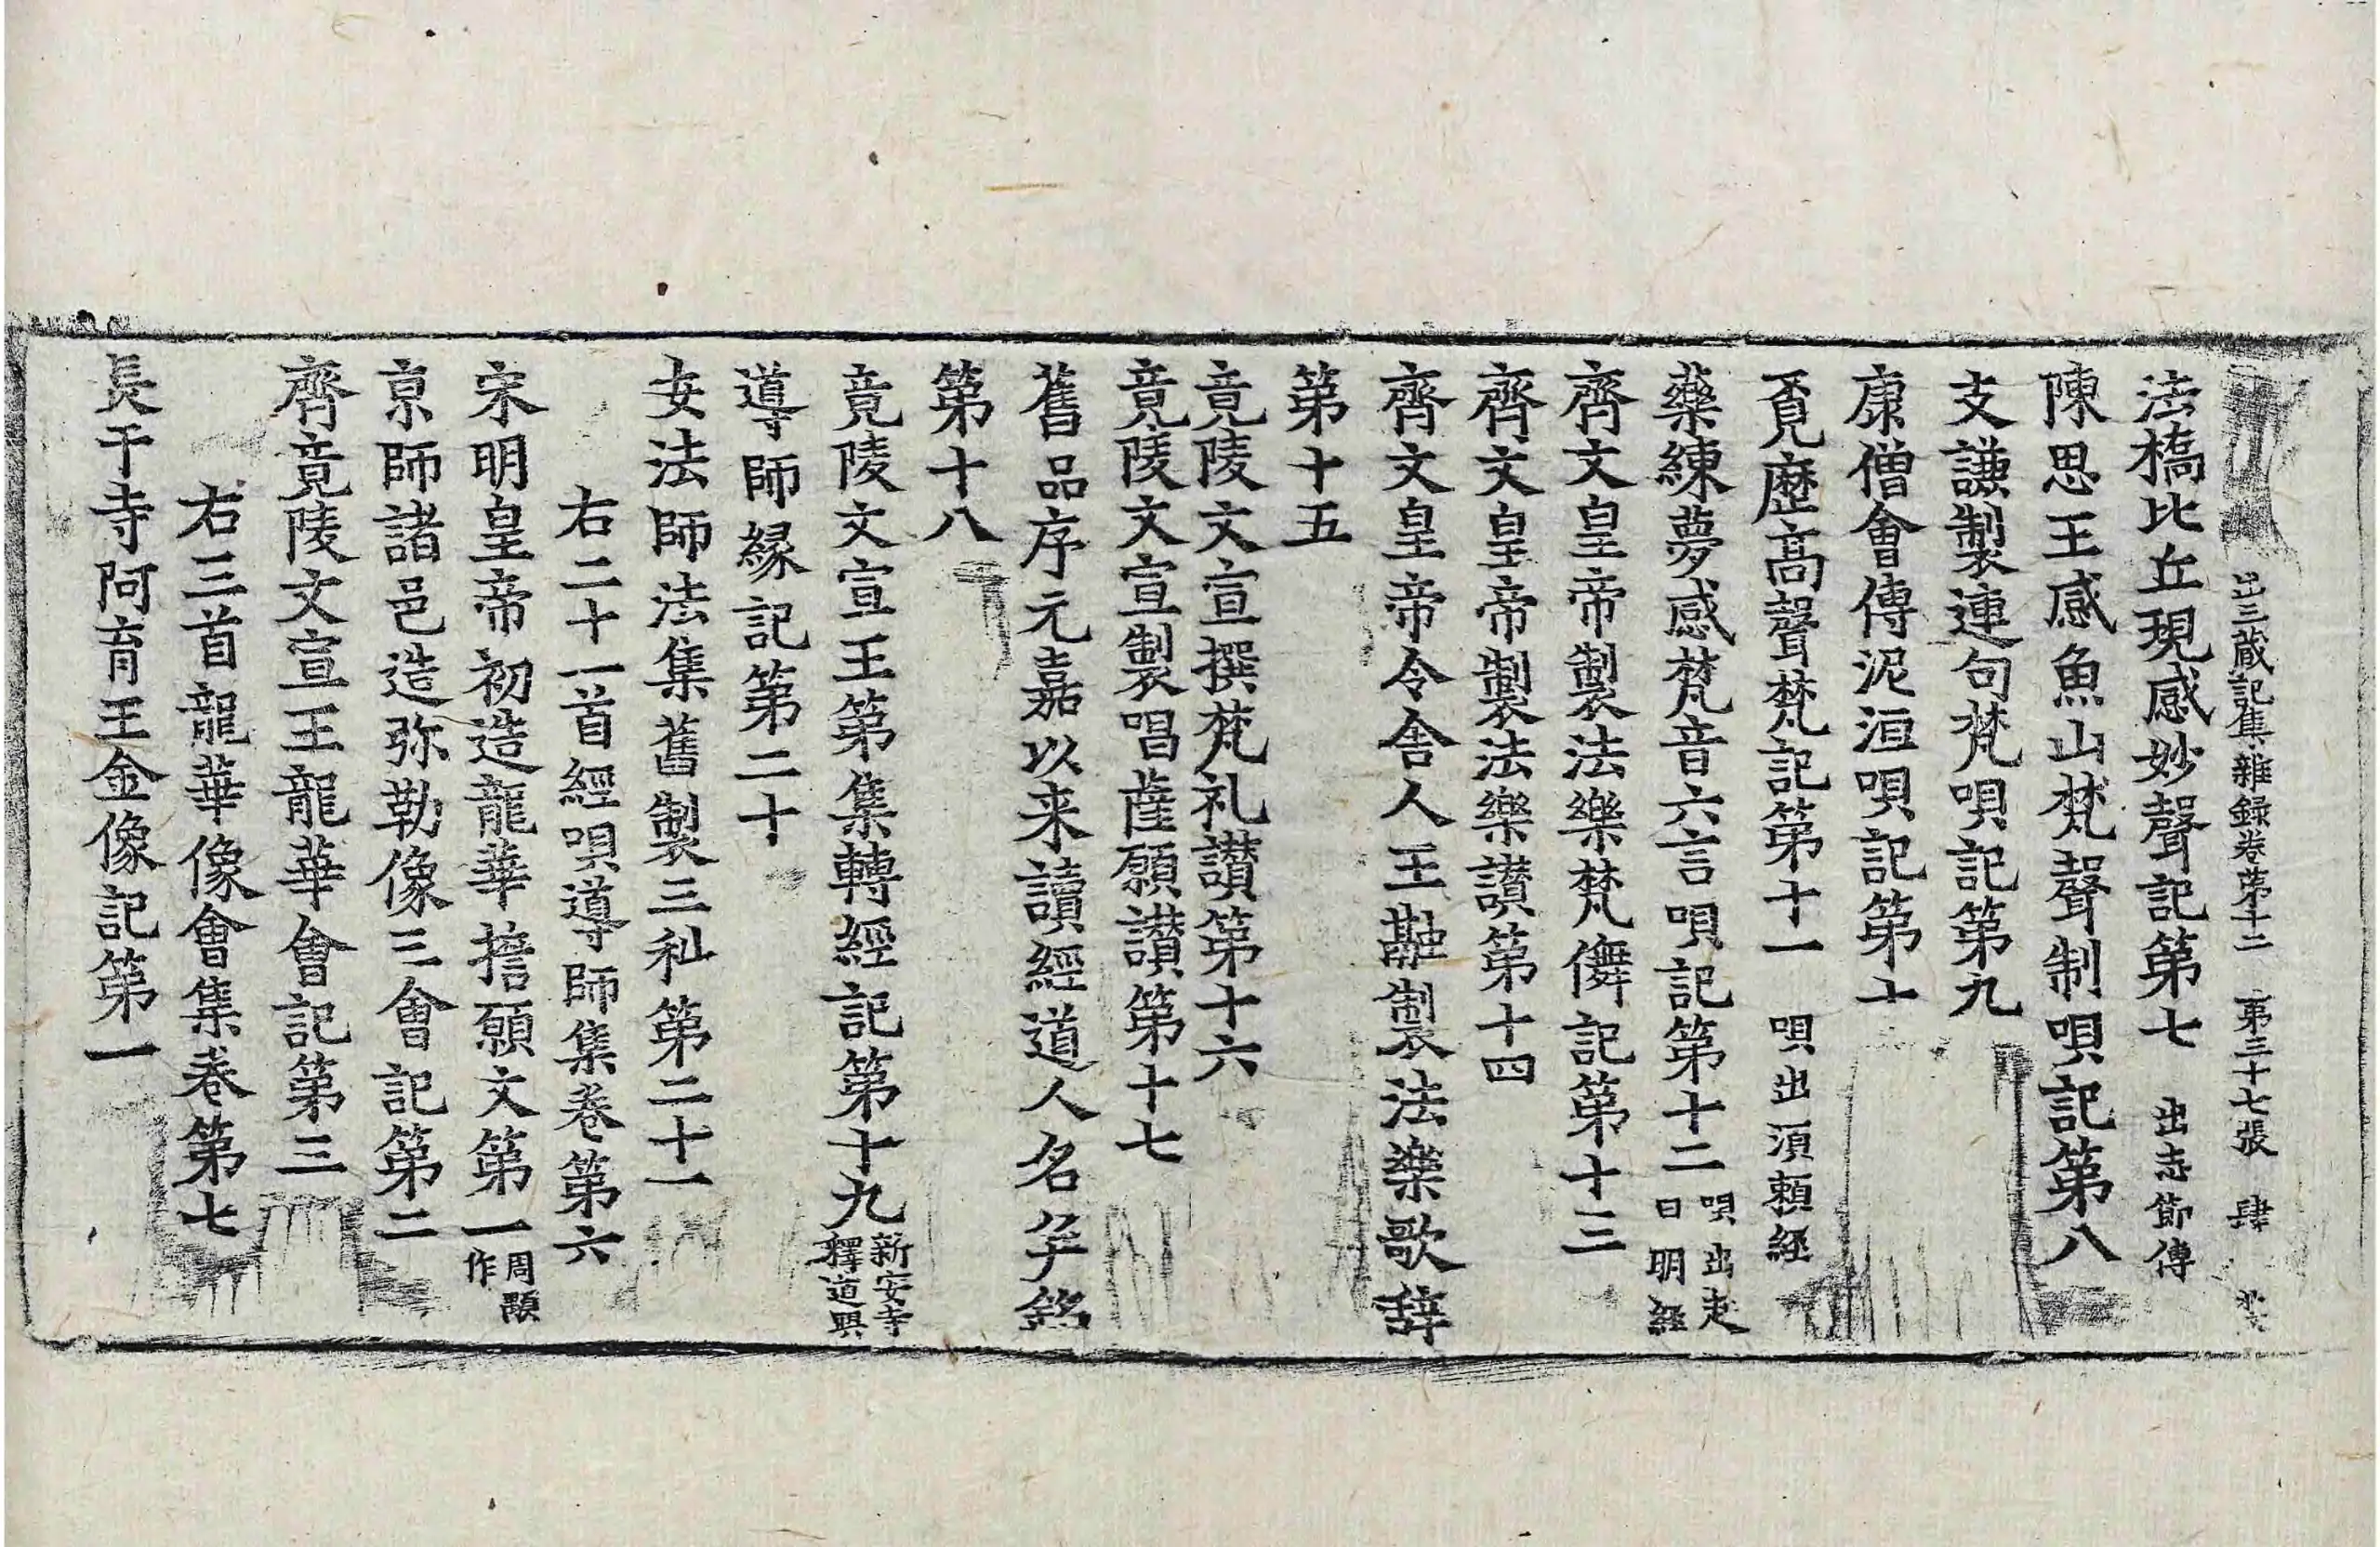 出三藏記集雜録卷第十二 第三十七張 肆
法橋比丘現感妙聲記第七 出志節傳
陳思王感魚山梵聲制唄記第八
支謙製連句梵唄記第九
康僧會傳泥洹唄記第十
覓歷高聲梵記第十一 唄出須賴經
藥練夢感梵音六言唄記第十二 唄出超日明經
齊文皇帝製法樂梵儛記第十三
齊文皇帝製法樂讃第十四
齊文皇帝令舎人王融製法樂歌辞
第十五
竟陵文宣撰梵礼讃第十六
竟陵文宣製唱薩願讃第十七
舊品序元嘉以来讀經道人名并銘
第十八
竟陵文宣王第集轉經記第十九 新安寺釋道興
導師縁記第二十
安法師法集舊製三科第二十一
右二十一首經唄導師集卷第六
宋明皇帝初造龍華擔願文第一 周顒作
京師諸邑造弥勒像三會記第二
齊竟陵文宣王龍華會記第三
右三首龍華像會集卷第七
長干寺阿育王金像記第一